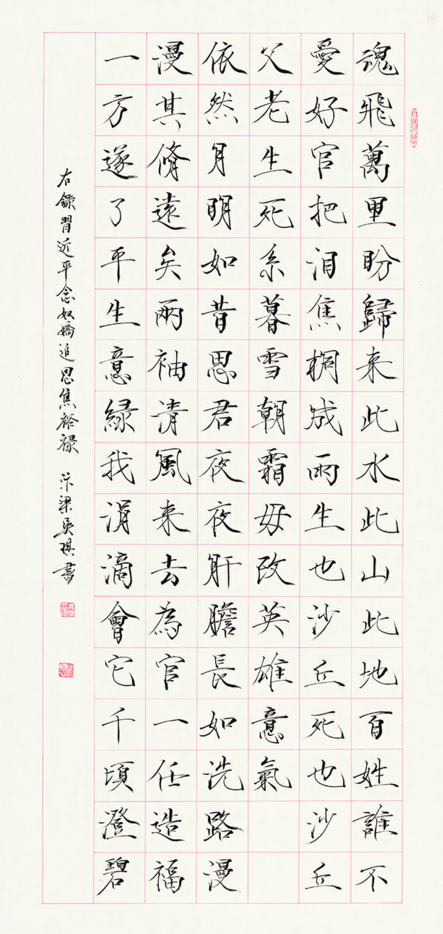 魂飛萬里盼歸来此水此山此地百姓誰不
愛好官把泪焦桐成雨生也沙丘死也沙丘
父老生死系暮雪朝霜毋改英雄意氣
依然月明如昔思君夜夜肝膽長如洗路漫
漫其脩遠矣兩袖清風来去為官一任造福
一方遂了平生意緑我涓滴會它千頃澄碧
右錄習近平念奴嬌追思焦裕禄 汴梁吴琪書